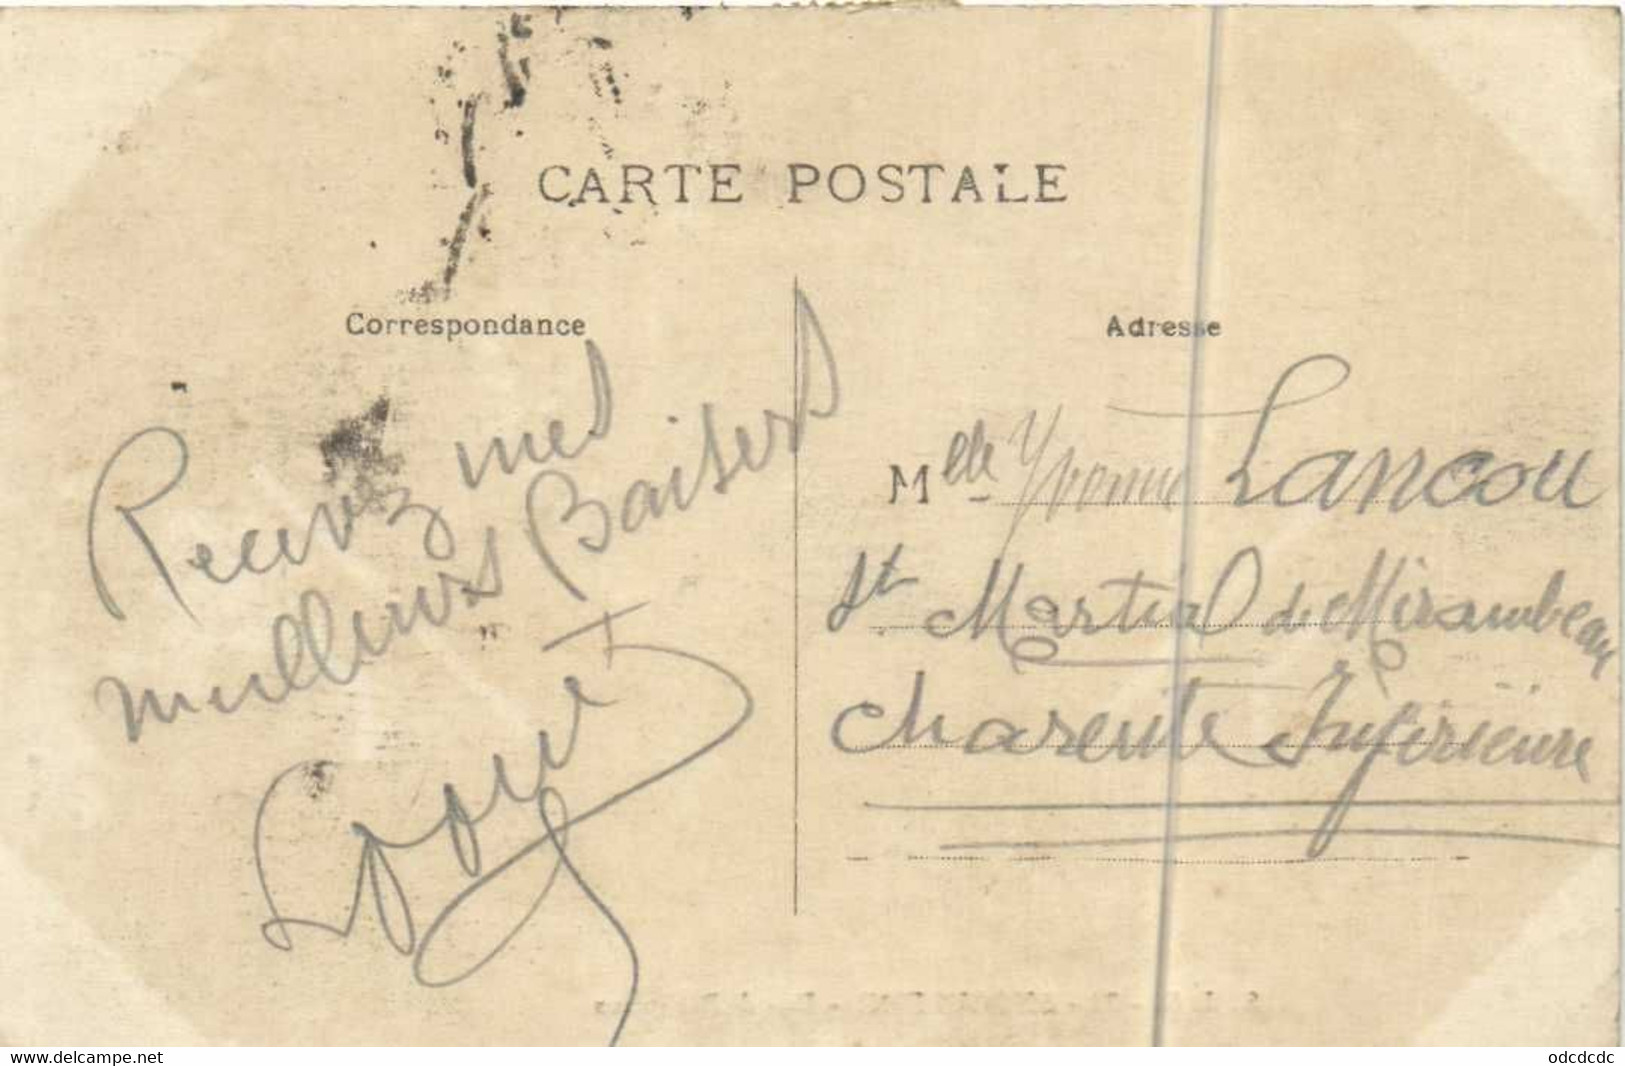 CARTE POSTALE
Correspondance
Adresse
Recevez mes
meilleurs Baisers
Melle Yvonne Lancou
St Martial de Mirambeau
Charente Inférieure
www.delcampe.net
odcdcdc